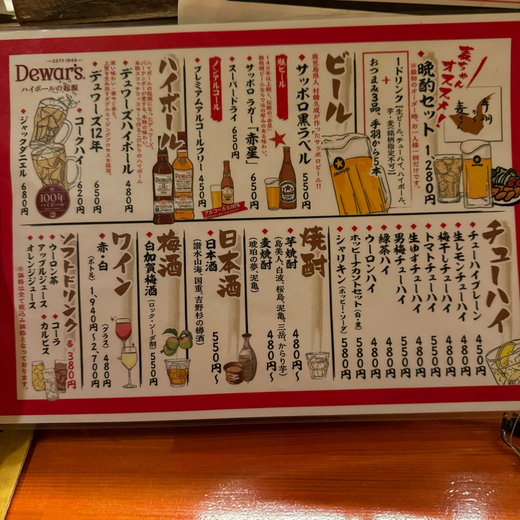 麦ちゃんオススメ!
晩酌セット 1,280円
※最初のオーダー時、お一人様一回だけです。
1ドリンク(生ビール、チューハイ、ハイボール、芋・麦)(銘柄指定不可)
+
おつまみ3品 手羽から5本
ビール
鹿児島県人・村橋久成が作ったサッポロビール!!
サッポロ黒ラベル 550円
瓶ビール
サッポロラガー「赤星」 650円
スーパードライ 650円
ノンアルコール
プレミアムアルコールフリー 450円
アルコール0.00%
ハイボール
デュワーズハイボール 480円
デュワーズ12年 650円
コークハイ 620円
ジャックダニエル 680円
ESTD 1846
Dewar's
ハイボールの起源
100年
ハイボール
チューハイ
チューハイプレーン 450円
生レモンチューハイ 480円
梅干しチューハイ 480円
トマトチューハイ 480円
生ゆずチューハイ 480円
男梅チューハイ 480円
緑茶ハイ 480円
ウーロンハイ 480円
ホッピーナカントセット(白・黒) 580円
シャリキン(ホッピー・ソーダ) 580円
焼酎
芋焼酎 480円〜
(島美人、白波、桜島、泥亀、三岳、からり芋)
麦焼酎 480円〜
(琥珀の夢、泥亀)
日本酒
日本酒 550円〜
(潜水山海、国重、吉野杉の樽酒)
梅酒
白加賀梅酒(ロック・ソーダ割) 550円
ワイン
赤・白 (グラス) 480円
(ボトル) 1,940円〜2,700円
ソフトドリンク 各380円
ウーロン茶 コーラ
アップルジュース カルピス
オレンジジュース
※価格は全て税込み価格となっております。